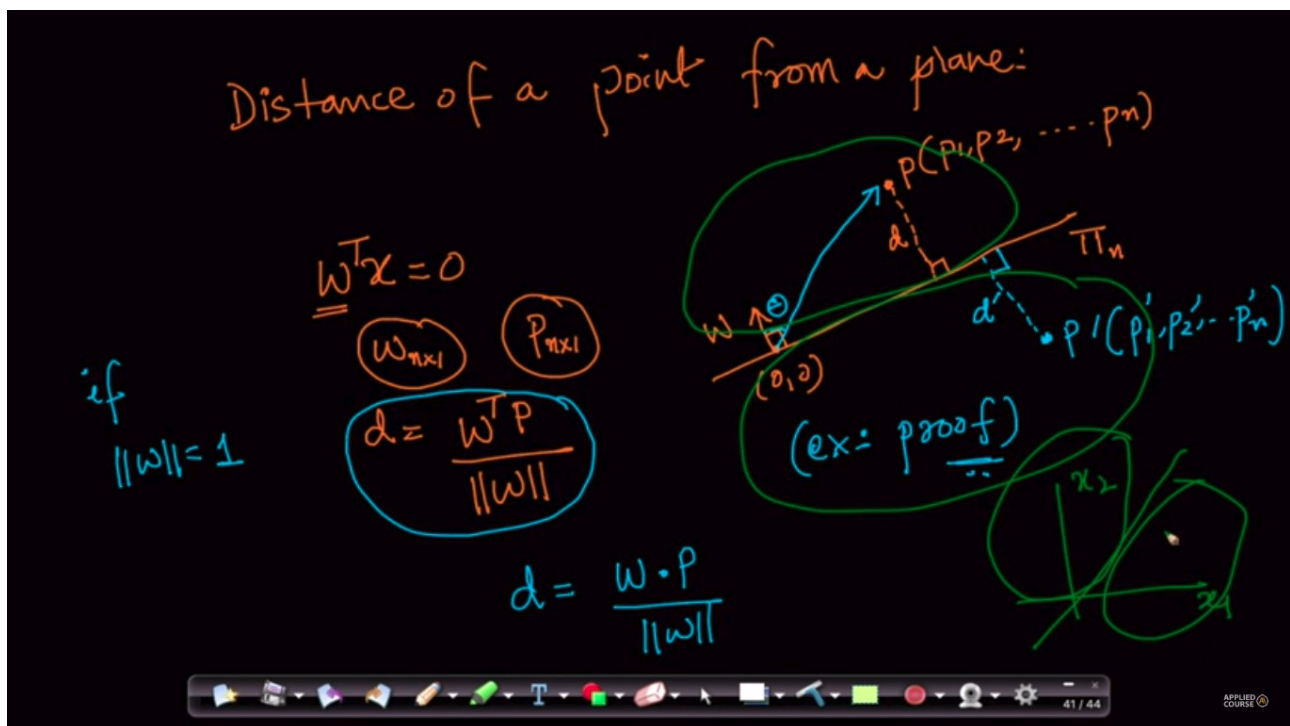 Distance of a point from a plane:
P(p1,p2, ..... pn)
d
πn
w
(0,0)
d'
P'(p1',p2',..p'n)
wᵀx=0
wₙₓ₁
Pₙₓ₁
if
||w||=1
d= wᵀP
||w||
(ex: proof)
x2
x1
d= w·P
||w||
T
41 / 44
APPLIED
COURSE